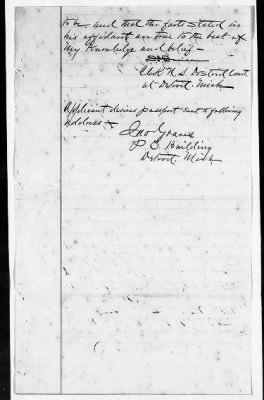 to be, and that the facts stated in
his affidavit are true to the best of
my knowledge and belief -
Clerk U.S. District Court
at Detroit. Mich
Applicant desires passport sent to following
address -
Jno Graves
P. O. Building
Detroit. Mich,